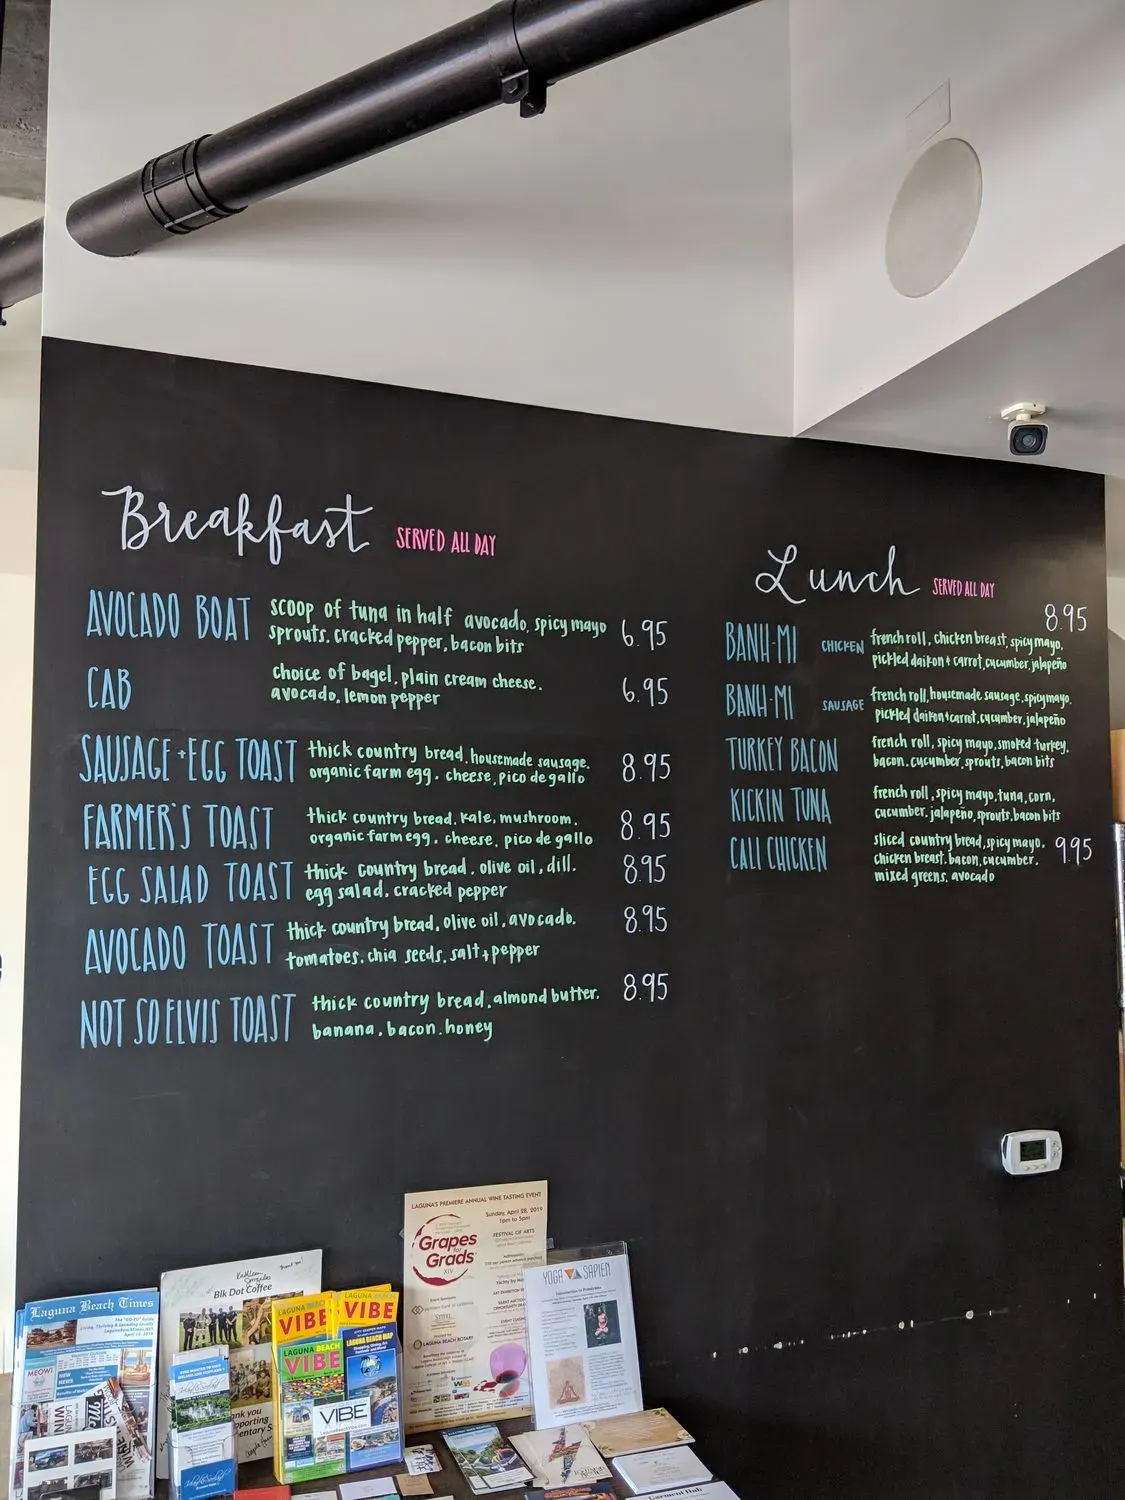 Breakfast SERVED ALL DAY
AVOCADO BOAT scoop of tuna in half avocado, spicy mayo 6.95
sprouts, cracked pepper, bacon bits
CAB choice of bagel, plain cream cheese, 6.95
avocado, lemon pepper
SAUSAGE + EGG TOAST thick country bread, housemade sausage, 8.95
organic farm egg, cheese, pico de gallo
FARMER'S TOAST thick country bread, kale, mushroom, 8.95
organic farm egg, cheese, pico de gallo
EGG SALAD TOAST thick country bread, olive oil, dill, 8.95
egg salad, cracked pepper
AVOCADO TOAST thick country bread, olive oil, avocado, 8.95
tomatoes, chia seeds, salt + pepper
NOT SO ELVIS TOAST thick country bread, almond butter, 8.95
banana, bacon, honey
Lunch SERVED ALL DAY
8.95
BANH-MI CHICKEN french roll, chicken breast, spicy mayo,
pickled daikon + carrot, cucumber, jalapeño
BANH-MI SAUSAGE french roll, housemade sausage, spicy mayo,
pickled daikon + carrot, cucumber, jalapeño
TURKEY BACON french roll, spicy mayo, smoked turkey,
bacon, cucumber, sprouts, bacon bits
KICKIN TUNA french roll, spicy mayo, tuna, corn,
cucumber, jalapeño, sprouts, bacon bits
CALI CHICKEN sliced country bread, spicy mayo, 9.95
chicken breast, bacon, cucumber,
mixed greens, avocado
LAGUNA'S PREMIERE ANNUAL WINE TASTING EVENT
Sunday, April 28, 2019
1pm to 5pm
Grapes
for
Grads
XIV
FESTIVAL OF ARTS
LAGUNA BEACH ROTARY
YOGA SAPIEN
Laguna Beach Times
MEOW!
Blk Dot Coffee
LAGUNA BEACH
VIBE
VIBE
LAGUNA BEACH
VIBE
LAGUNA BEACH MAP
VIBE
Garment Hub